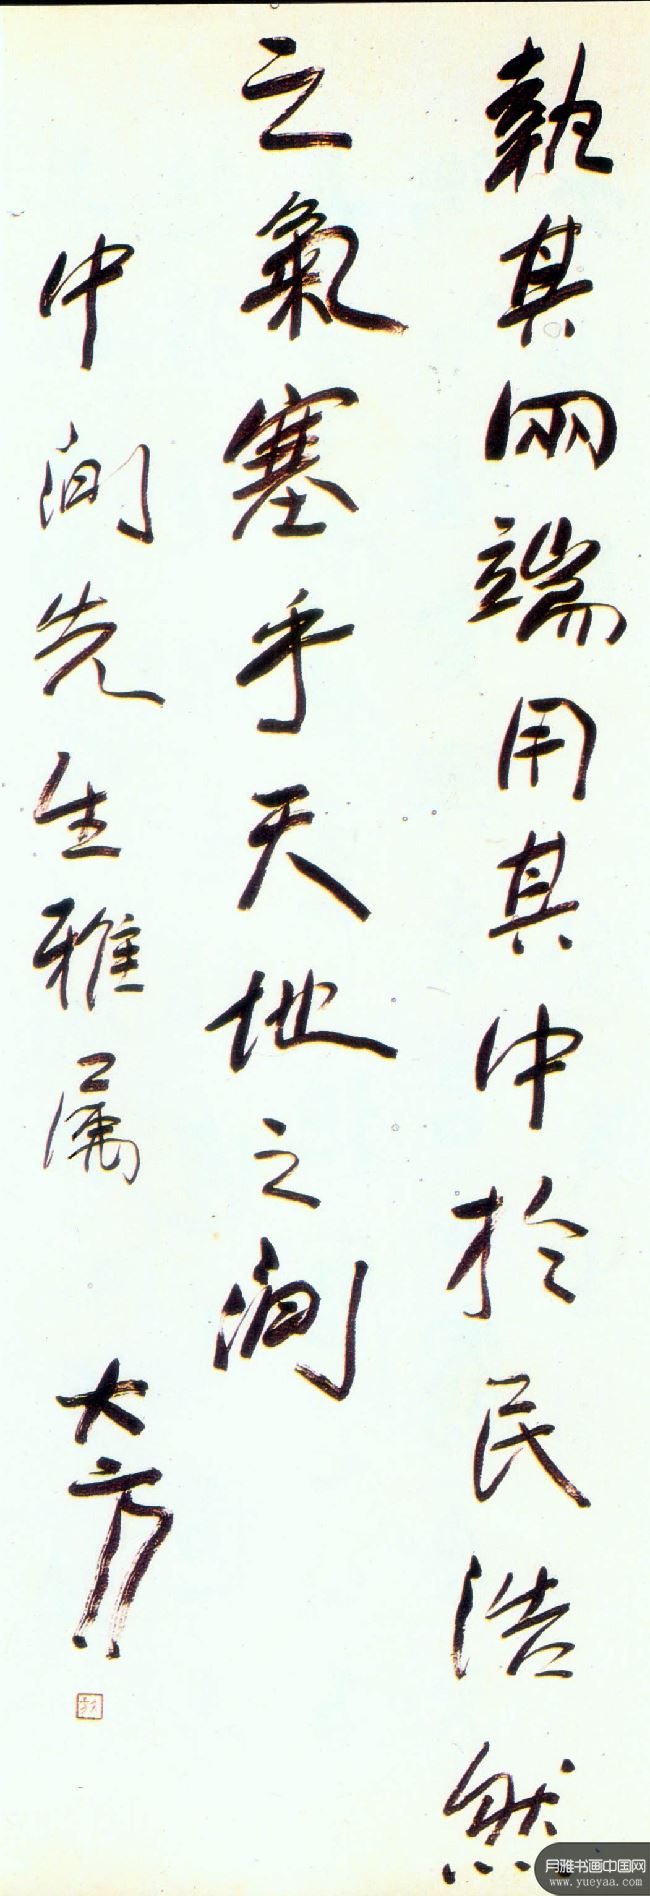 執其兩端用其中於民浩然
之氣塞乎天地之間
中間先生雅属
大方
月雅书画中国网
www.yueyaa.com